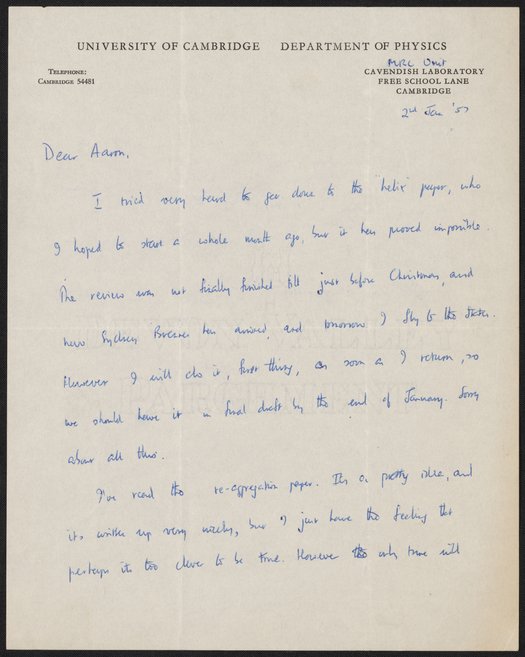 UNIVERSITY OF CAMBRIDGE DEPARTMENT OF PHYSICS
TELEPHONE:
CAMBRIDGE 54481
MRC Unit
CAVENDISH LABORATORY
FREE SCHOOL LANE
CAMBRIDGE
2nd Jan '57
Dear Aaron,
I tried very hard to get down to the "helix" paper, who
I hoped to start a whole month ago, but it has proved impossible.
The review was not finally finished till just before Christmas, and
now Sydney Brenner has arrived, and tomorrow I fly to the States.
However I will do it, first thing, as soon as I return, so
we should have it in final draft by the end of January. Sorry
about all this.
I've read the re-aggregation paper. Its a pretty idea, and
its written up very nicely, but I just have the feeling that
perhaps its too clever to be true. However the only time will